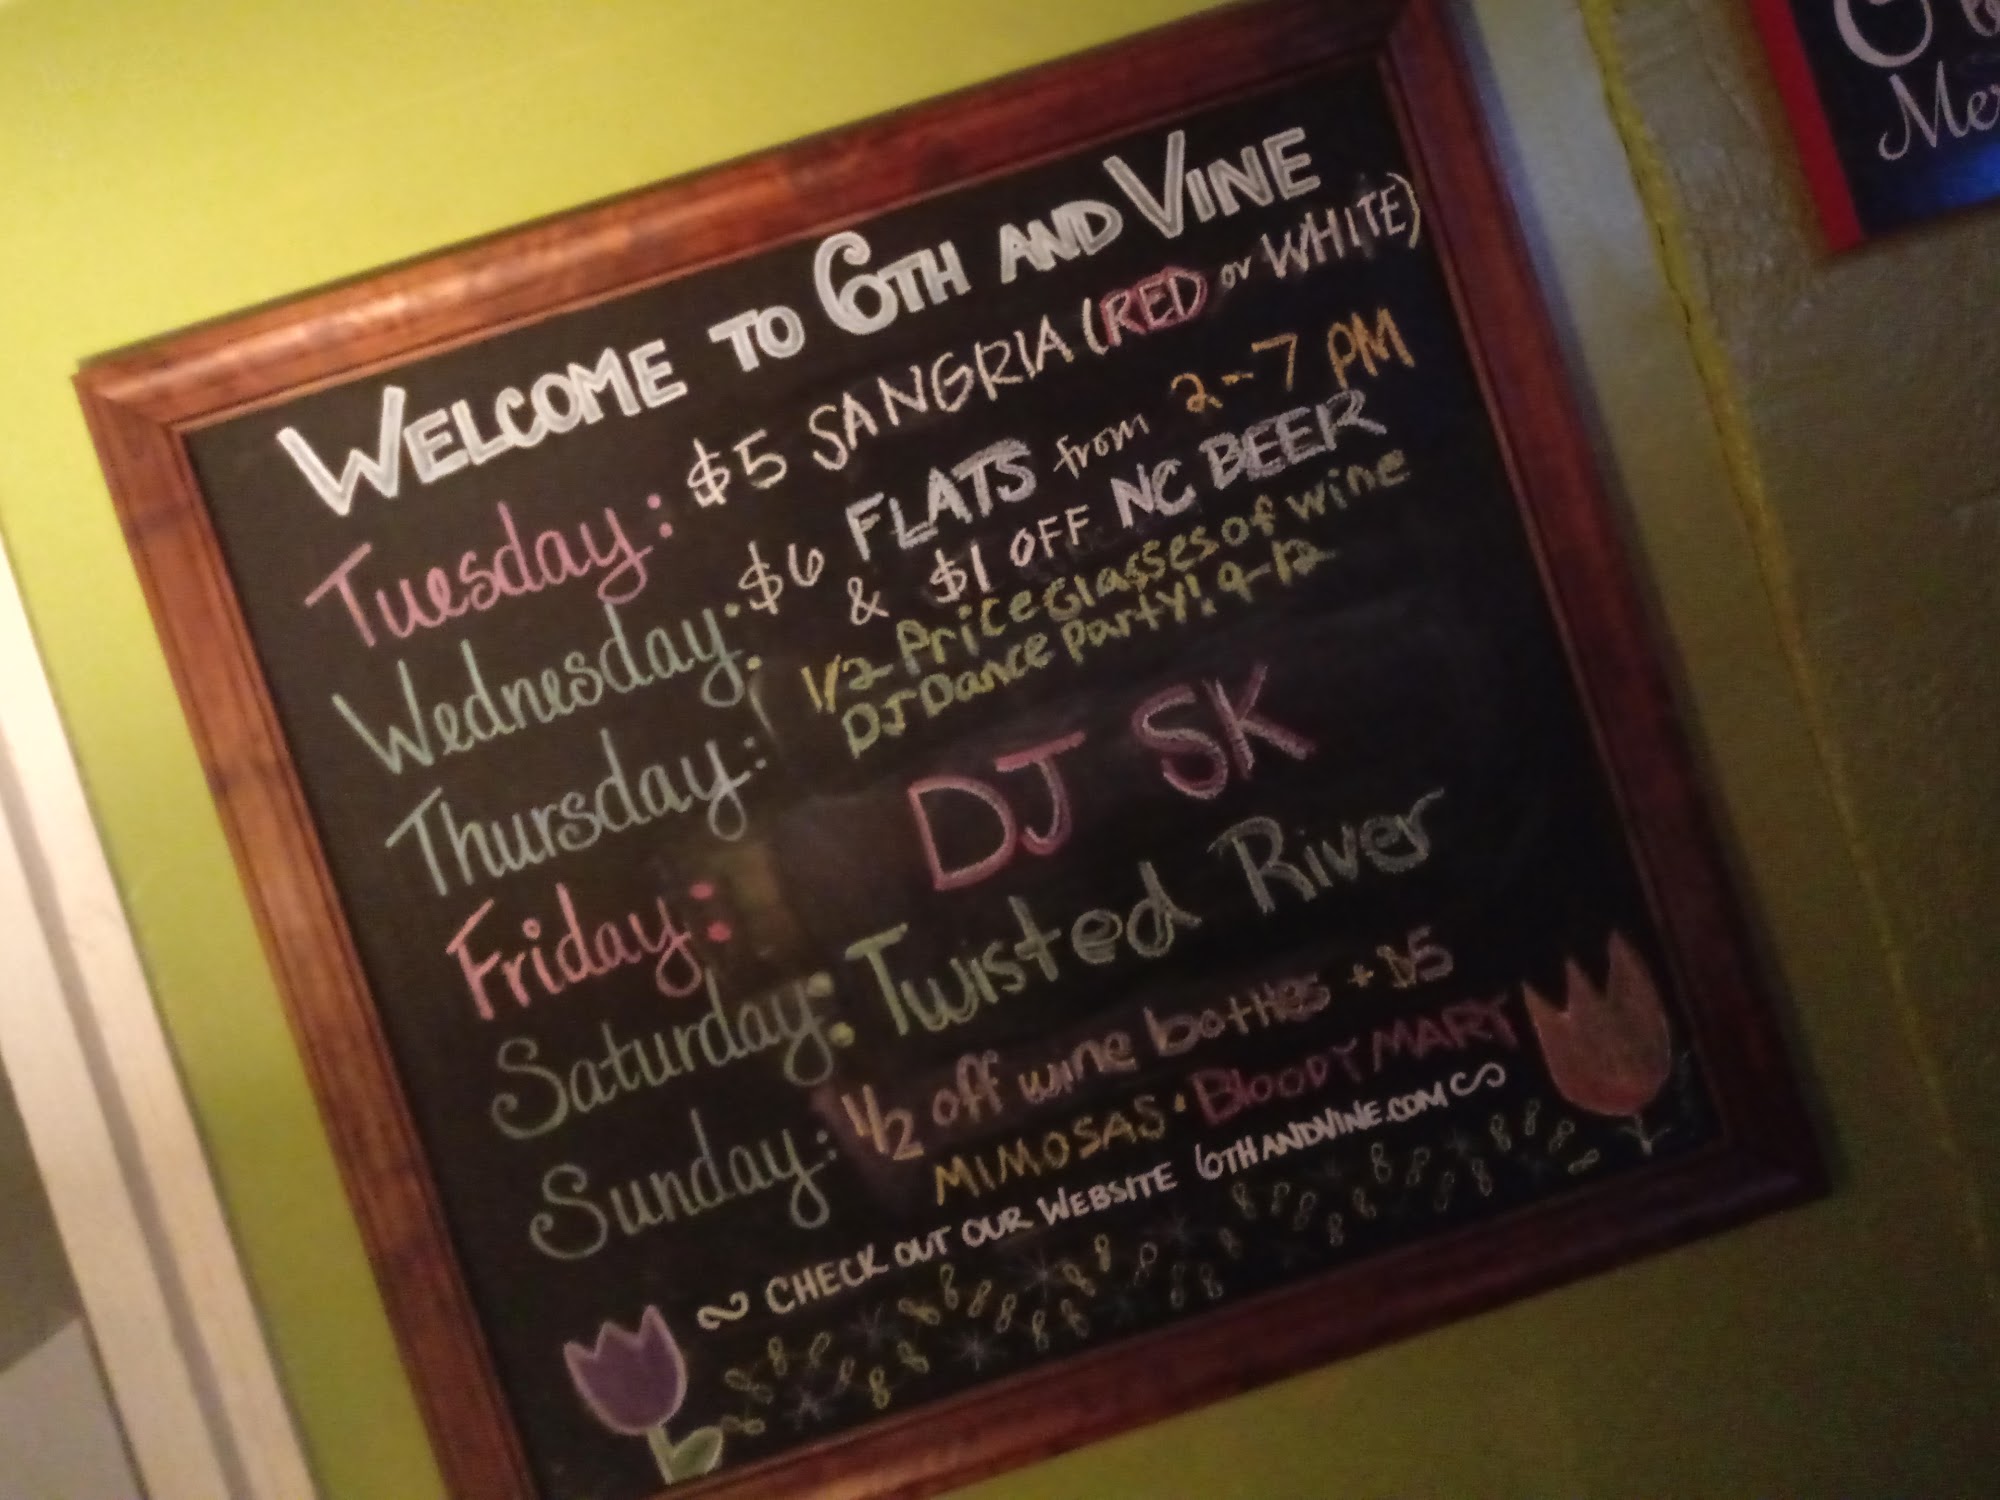 WELCOME TO 6TH AND VINE
Tuesday: $5 SANGRIA (RED or WHITE)
Wednesday: $6 FLATS from 2-7 PM
& $1 OFF NC BEER
Thursday: 1/2 Price Glasses of wine
DJ Dance Party! 9-12
Friday: DJ SK
Saturday: Twisted River
Sunday: 1/2 off wine bottles + $5
MIMOSAS • BLOODY MARY
~ CHECK OUT OUR WEBSITE 6THANDVINE.COM ~